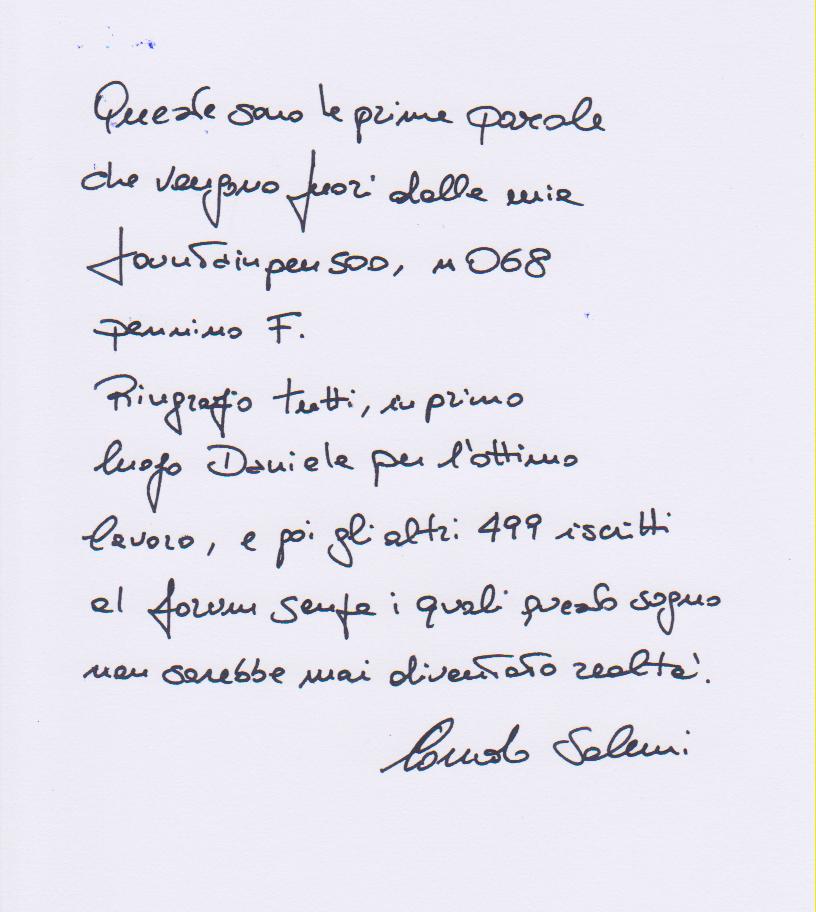 Queste sono le prime parole
che vengono fuori dalla mia
fountainpen 500, n 068
pennino F.
Ringrazio tutti, in primo
luogo Daniele per l'ottimo
lavoro, e poi gli altri 499 iscritti
al forum senza i quali questo sogno
non sarebbe mai diventato realtà.
Corrado Salemi